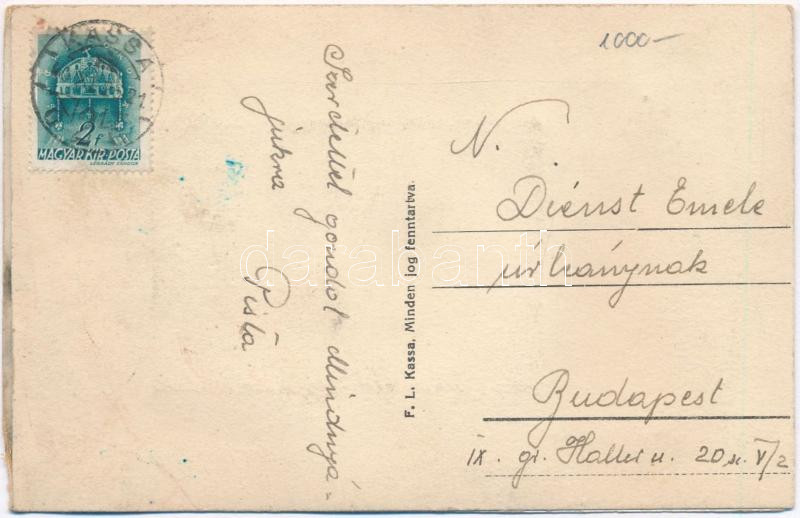 1000-
KASSA
2f
MAGYAR KIR. POSTA
LÉGRÁDY SÁNDOR
Szerdettel gondol Mindnyá-
jukra
Pista
F. L. Kassa, Minden jog fenntartva.
N.
Dienst Emele
úrhánynak
Budapest
IX. gr. Haller u. 20 sz. V/2
darabanth